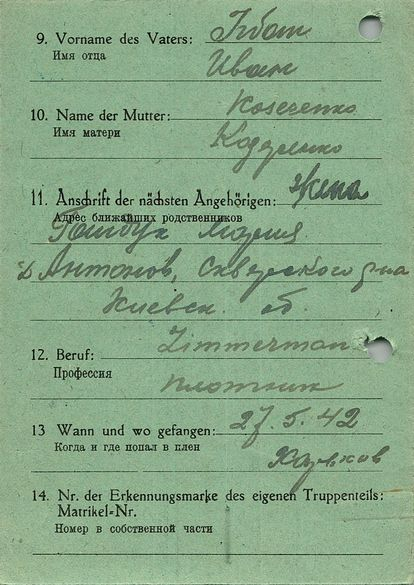 9. Vorname des Vaters: Iван
Имя отца
Иван
10. Name der Mutter: Koserenko
Имя матери
11. Anschrift der nächsten Angehörigen: жена
Адрес ближайших родственников
Мария
д Антонов, Сквирского р на
Киевск. об.
12. Beruf: Zimmerman
Профессия
плотник
13 Wann und wo gefangen: 27.5.42
Когда и где попал в плен
Харьков
14. Nr. der Erkennungsmarke des eigenen Truppenteils:
Matrikel-Nr.
Номер в собственной части